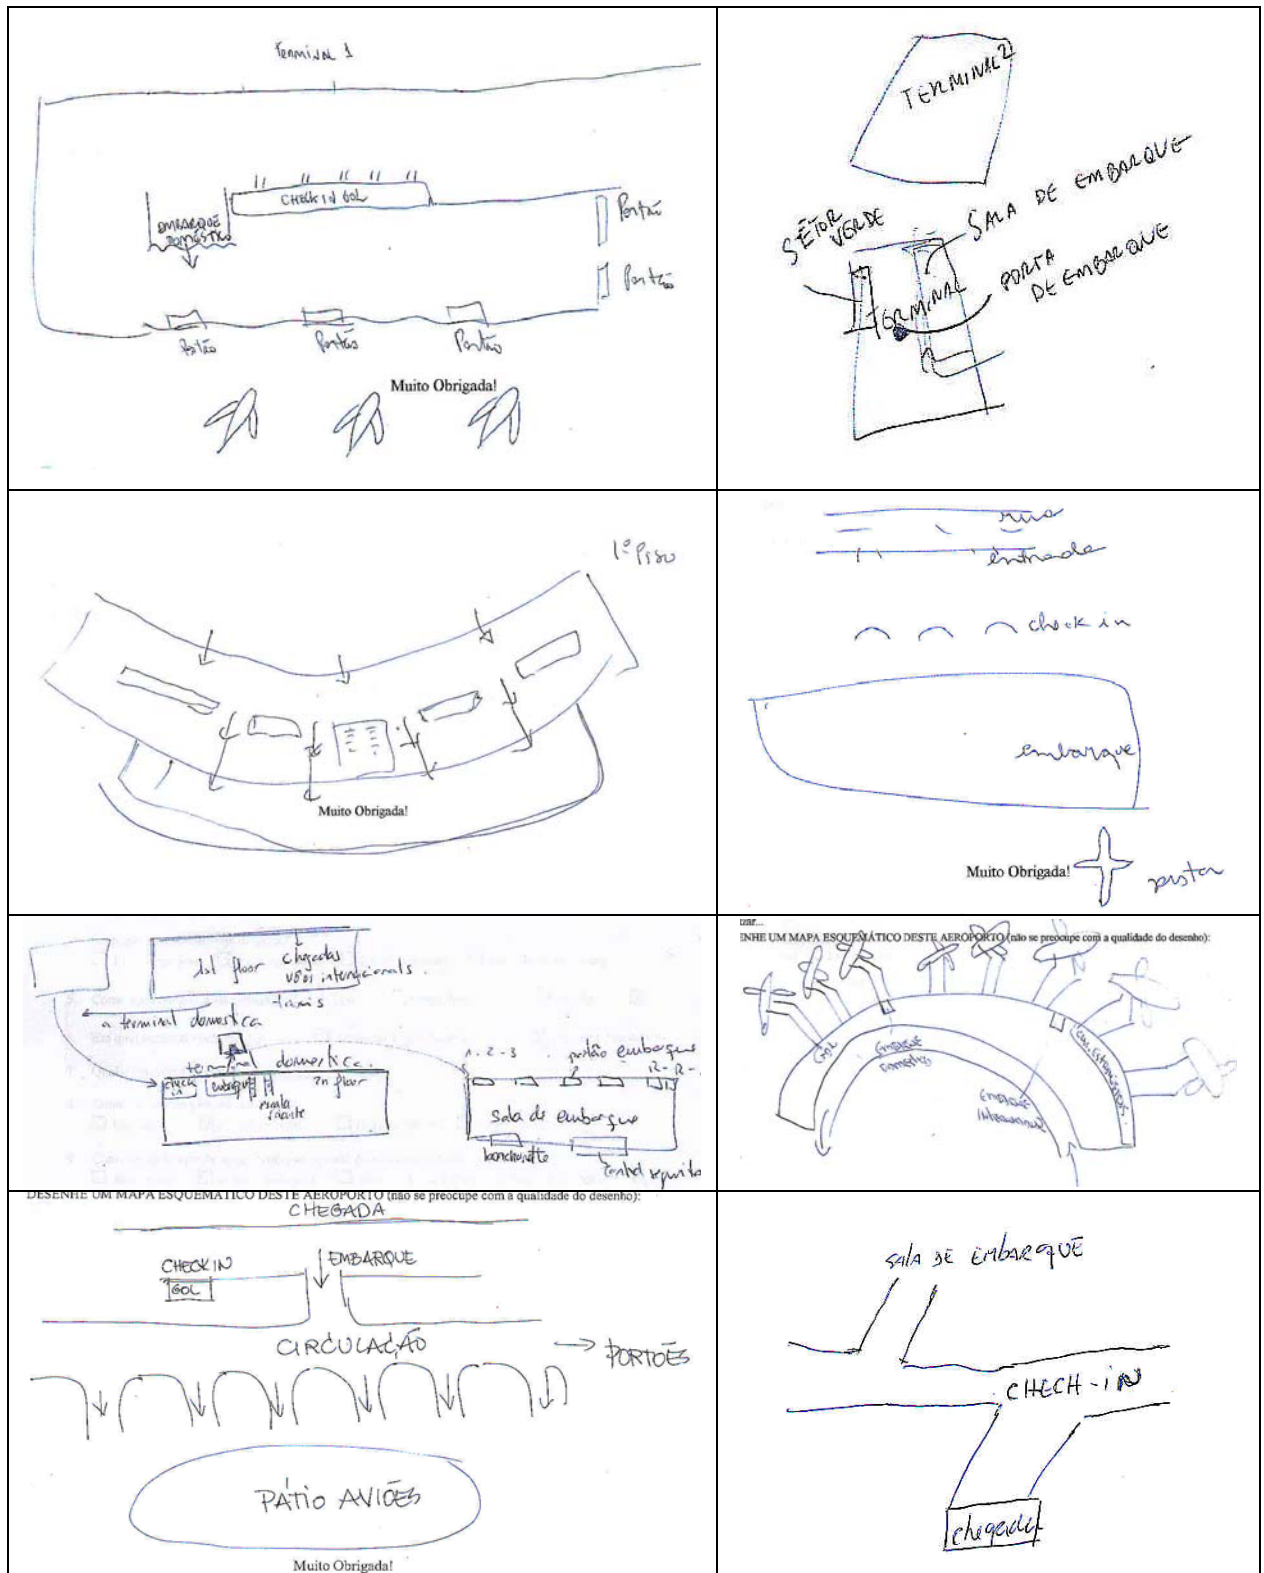 Terminal 1
CHECK IN GOL
EMBARQUE
DOMÉSTICO
Portão
Portão
Portão
Portão
Portão
Muito Obrigada!
TERMINAL 2
SALA DE EMBARQUE
SETOR
VERDE
TERMINAL
PORTA
DE EMBARQUE
1º Piso
Muito Obrigada!
rua
entrada
check in
embarque
Muito Obrigada!
pista
1st floor
chegadas
vôos
a terminal domestica
terminal domestica
check
in
embarque
2n floor
escala
1 - 2 - 3
portão embarque
sala de embarque
lanchonette
ENHE UM MAPA ESQUEMÁTICO DESTE AEROPORTO (não se preocupe com a qualidade do desenho):
GOL
EMBARQUE
DOMÉSTICO
EMBARQUE
INTERNACIONAL
DESENHE UM MAPA ESQUEMÁTICO DESTE AEROPORTO (não se preocupe com a qualidade do desenho):
CHEGADA
CHECK IN
GOL
EMBARQUE
CIRCULAÇÃO
PORTÕES
PÁTIO AVIÕES
Muito Obrigada!
SALA DE EMBARQUE
CHECH-iN
chegada